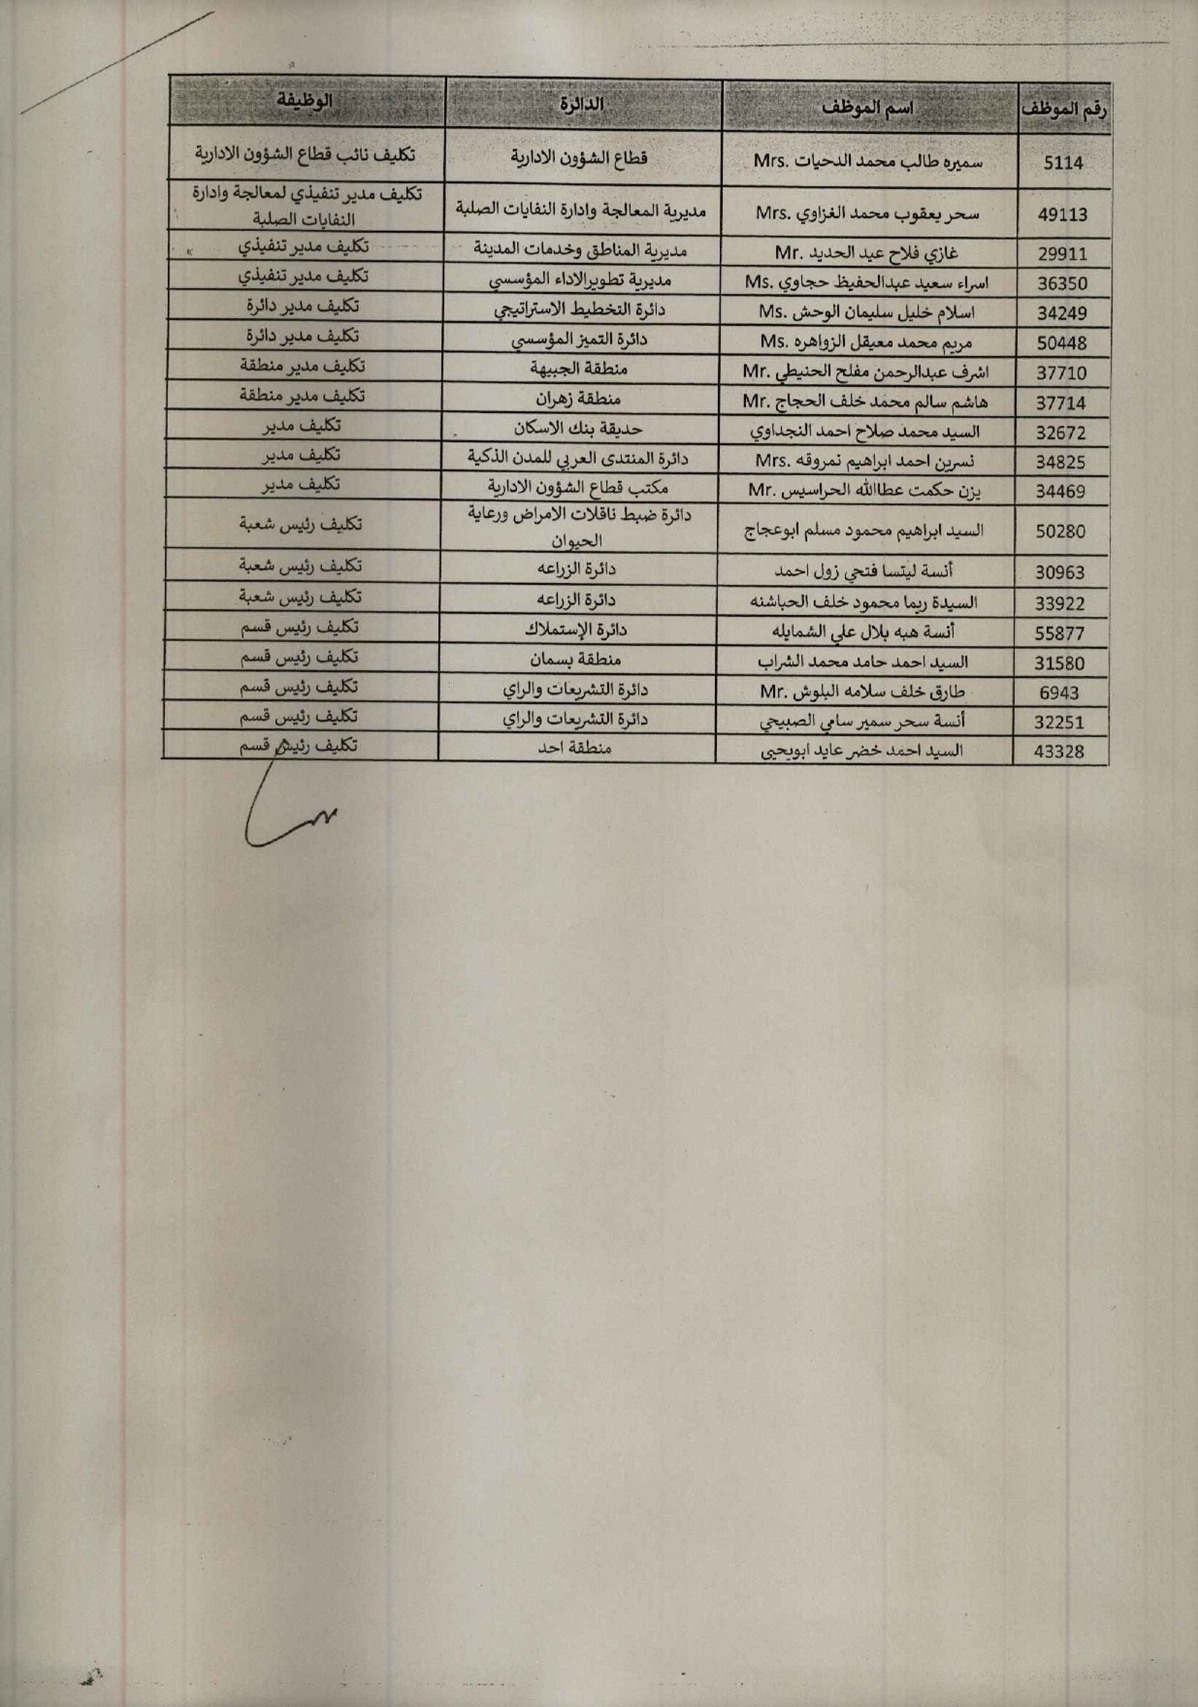 رقم الموظف اسم الموظف الدائرة الوظيفة
5114 سميره طالب محمد الدحيات .Mrs قطاع الشؤون الادارية تكليف نائب قطاع الشؤون الادارية
49113 سحر يعقوب محمد الغزاوي .Mrs مديرية المعالجة وادارة النفايات الصلبة تكليف مدير تنفيذي لمعالجة وادارة
النفايات الصلبة
29911 غازي فلاح عبد الحديد .Mr مديرية المناطق وخدمات المدينة تكليف مدير تنفيذي
36350 اسراء سعيد عبدالحفيظ حجاوي .Ms مديرية تطويرالاداء المؤسسي تكليف مدير تنفيذي
34249 اسلام خليل سليمان الوحش .Ms دائرة التخطيط الاستراتيجي تكليف مدير دائرة
50448 مريم محمد معيقل الزواهره .Ms دائرة التميز المؤسسي تكليف مدير دائرة
37710 اشرف عبدالرحمن مفلح الحنيطي .Mr منطقة الجبيهة تكليف مدير منطقة
37714 هاشم سالم محمد خلف الحجاج .Mr منطقة زهران تكليف مدير منطقة
32672 السيد محمد صلاح احمد النجداوي حديقة بنك الاسكان تكليف مدير
34825 نسرين احمد ابراهيم نمروقه .Mrs دائرة المنتدى العربي للمدن الذكية تكليف مدير
34469 يزن حكمت عطاالله الحراسيس .Mr مكتب قطاع الشؤون الادارية تكليف مدير
50280 السيد ابراهيم محمود مسلم ابوعجاج دائرة ضبط ناقلات الامراض ورعاية
الحيوان تكليف رئيس شعبة
30963 أنسة ليتسا فتحي زول احمد دائرة الزراعه تكليف رئيس شعبة
33922 السيدة ريما محمود خلف الحباشنه دائرة الزراعه تكليف رئيس شعبة
55877 أنسة هبه بلال علي الشمايله دائرة الإستملاك تكليف رئيس قسم
31580 السيد احمد حامد محمد الشراب منطقة بسمان تكليف رئيس قسم
6943 طارق خلف سلامه البلوش .Mr دائرة التشريعات والراي تكليف رئيس قسم
32251 أنسة سحر سمير سامي الصبيحي دائرة التشريعات والراي تكليف رئيس قسم
43328 السيد احمد خضر عايد ابويحيى منطقة احد تكليف رئيس قسم